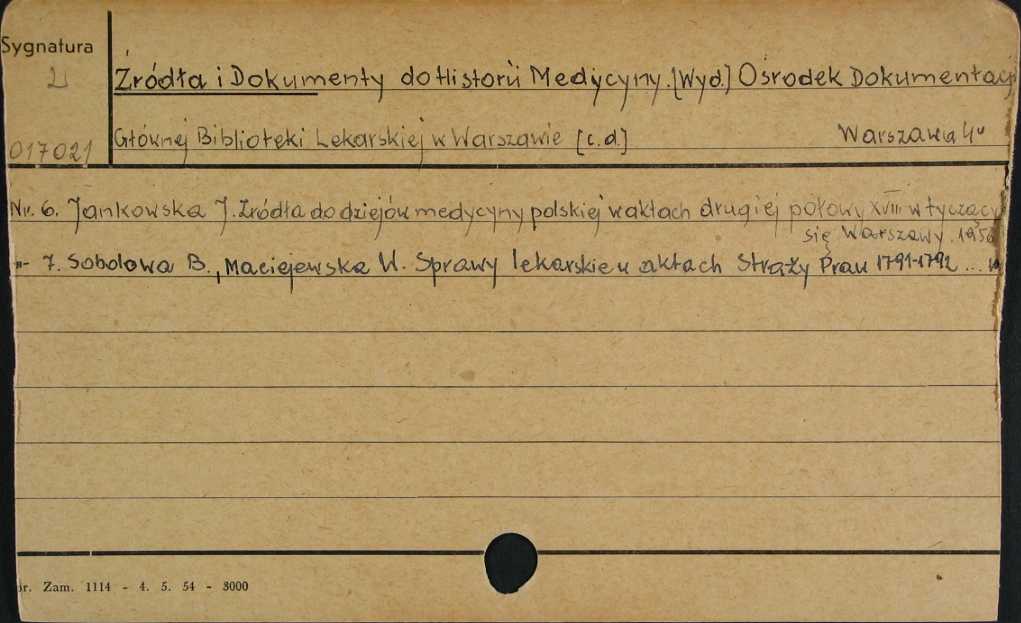 Sygnatura
Źródła i Dokumenty do Historii Medycyny. [Wyd.] Ośrodek Dokumentacji
Głównej Biblioteki Lekarskiej w Warszawie [c.d.] Warszawa 4°
017021
Nr. 6. Jankowska J. Źródła do dziejów medycyny polskiej w aktach drugiej połowy XVIII w tyczący
się Warszawy. 1956
-"- 7. Sobolowa B., Maciejewska W. Sprawy lekarskie w aktach Straży Praw 1791-1792 ...
nr. Zam. 1114 - 4. 5. 54 - 3000